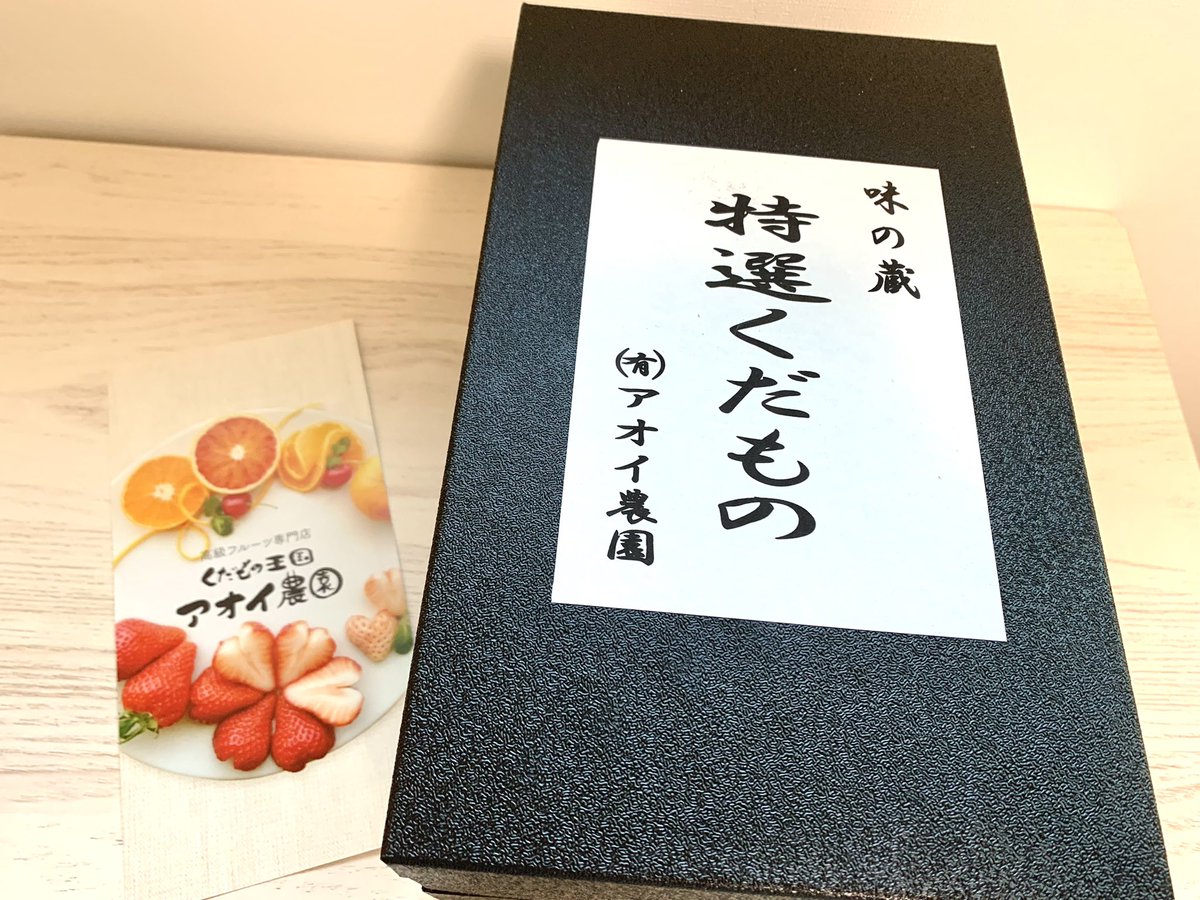 味の蔵
特選くだもの
㈲アオイ農園
高級フルーツ専門店
くだもの王国
アオイ農園